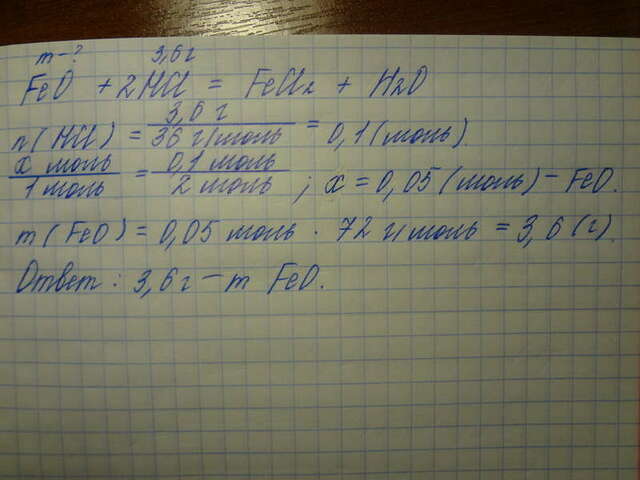 m-? 3,6 г
FeO + 2HCl = FeCl₂ + H₂O
n(HCl) = 3,6 г / 36 г/моль = 0,1 (моль).
x моль / 1 моль = 0,1 моль / 2 моль ; x = 0,05 (моль) - FeO.
m(FeO) = 0,05 моль · 72 г/моль = 3,6 (г).
Ответ: 3,6 г - m FeO.